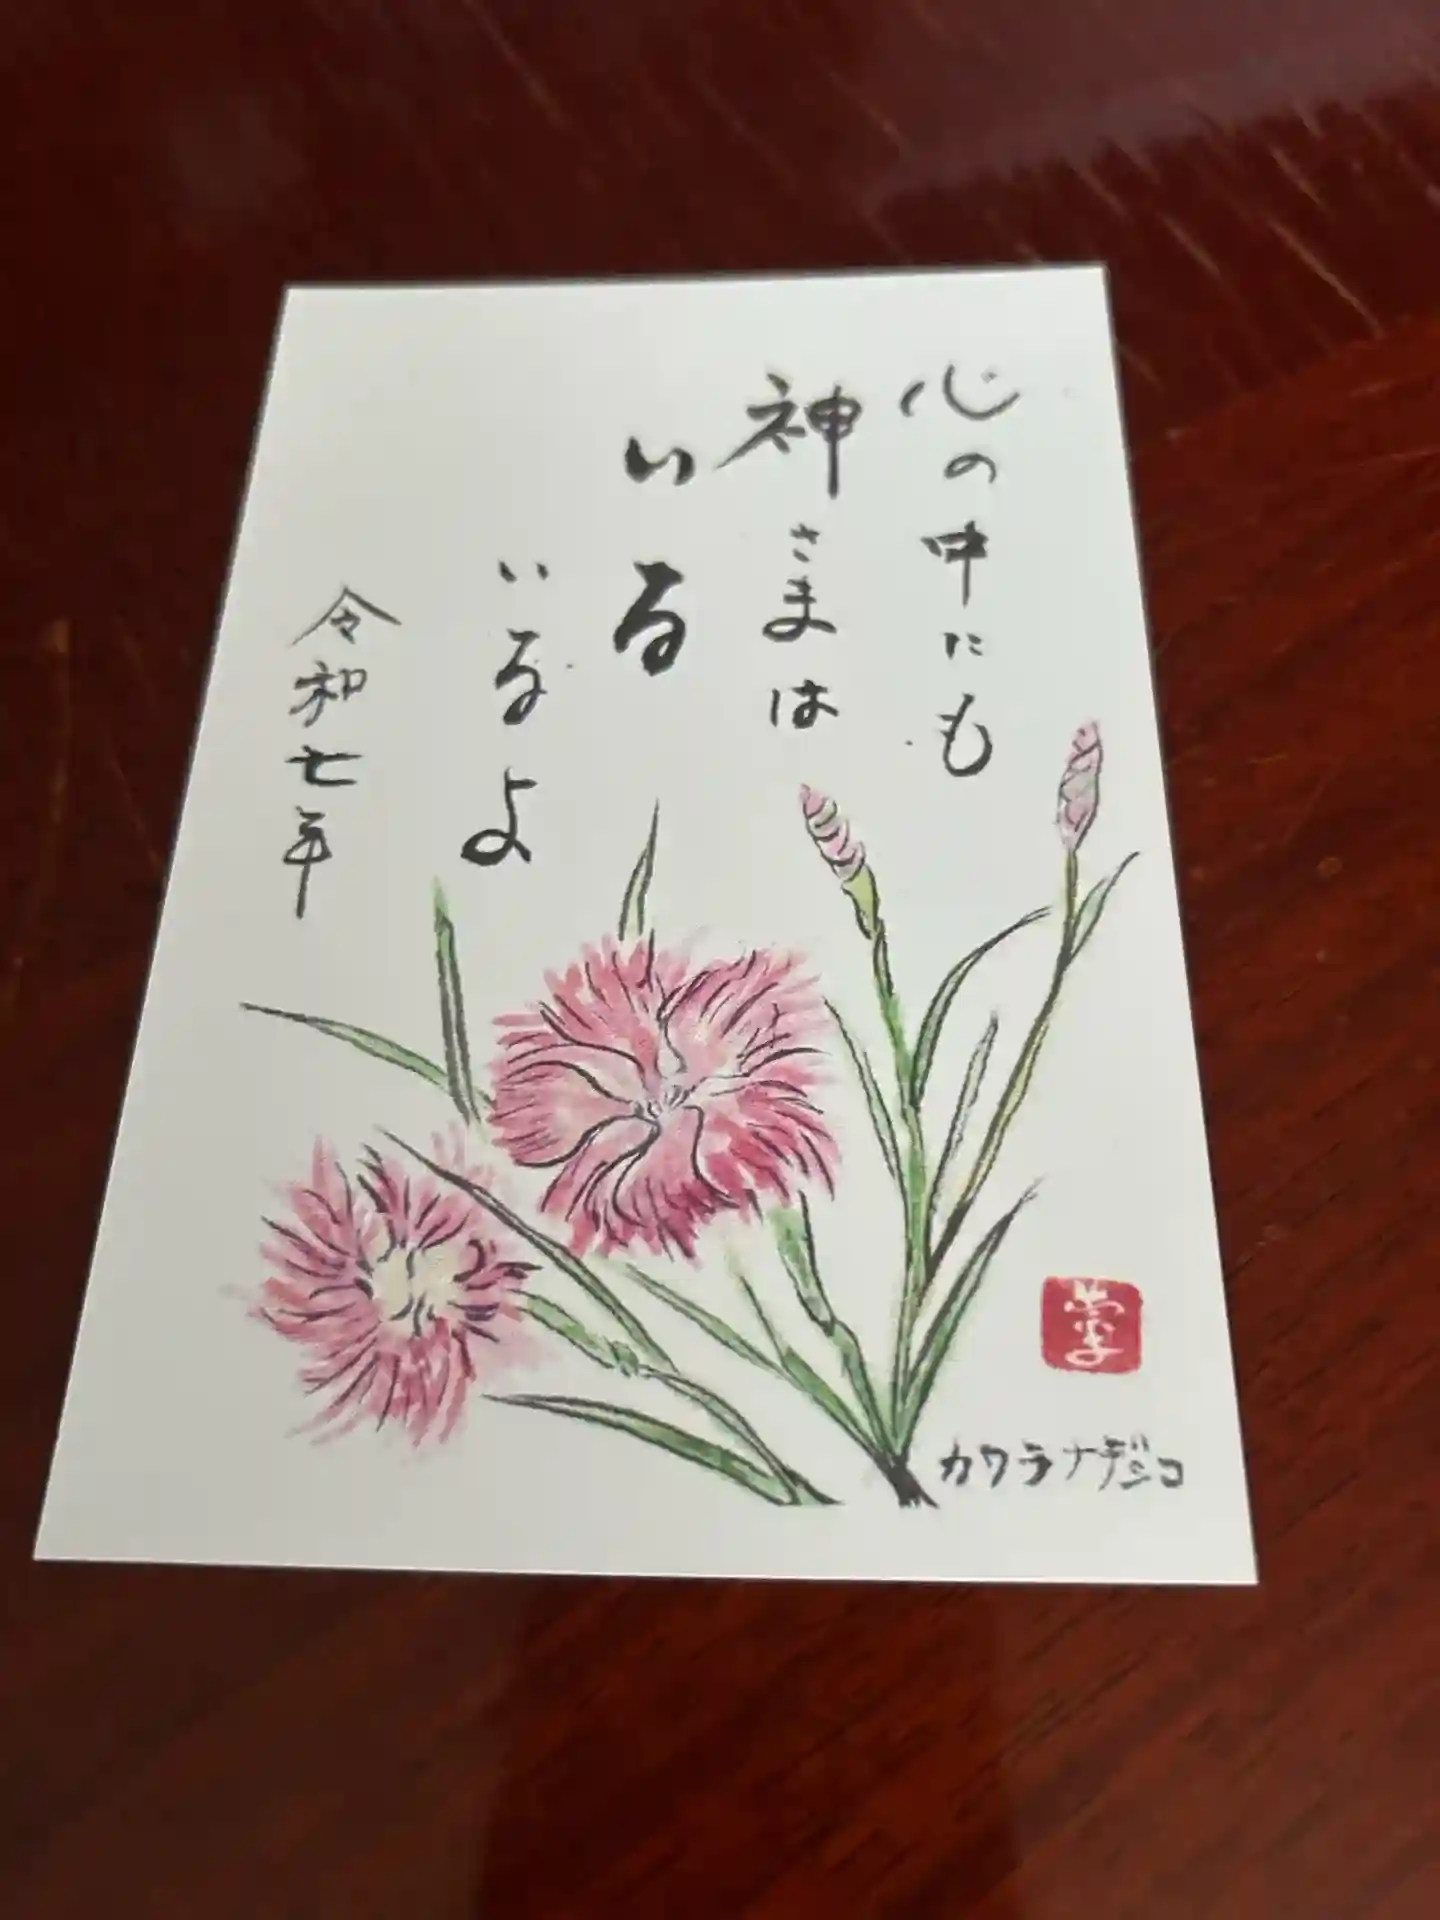 心の中にも
神さまは
いる
いるよ
令和七年
カワラナデシコ